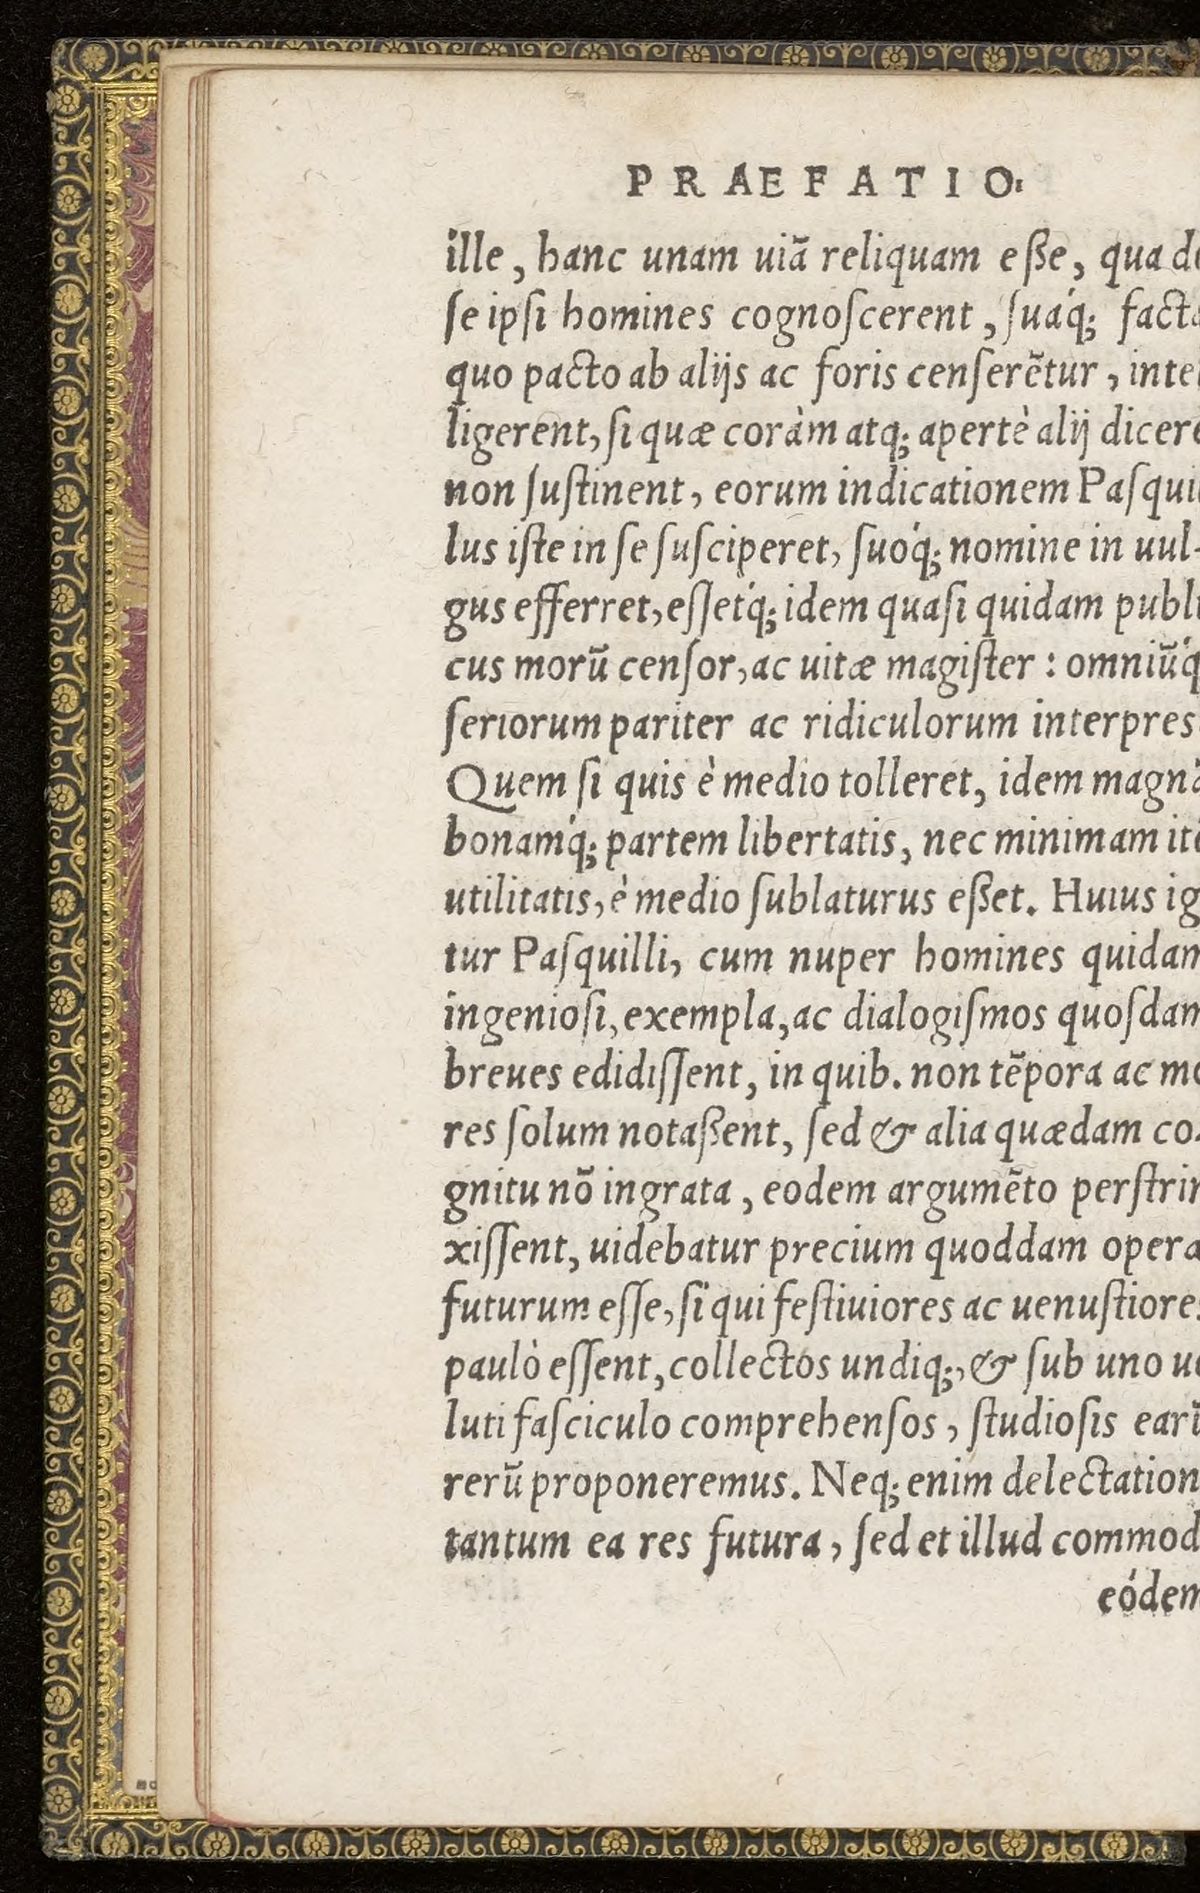 PRAEFATIO.
ille, hanc unam uiã reliquam eße, qua de
ſe ipſi homines cognoſcerent, ſuaq́; facta
quo pacto ab alijs ac foris cenſerẽtur, intel
ligerent, ſi quæ coràm atq; apertè alij dicere
non ſuſtinent, eorum indicationem Paſquil
lus iſte in ſe ſuſciperet, ſuoq́; nomine in uul-
gus efferret, eſſetq́; idem quaſi quidam publi
cus morũ cenſor, ac uitæ magiſter: omniũq́
ſeriorum pariter ac ridiculorum interpres
Quem ſi quis è medio tolleret, idem magnã
bonamq́; partem libertatis, nec minimam ite
utilitatis, è medio ſublaturus eßet. Huius ig
tur Paſquilli, cum nuper homines quidam
ingenioſi, exempla, ac dialogiſmos quoſdam
breues edidiſſent, in quib. non tẽpora ac mo
res ſolum notaßent, ſed & alia quædam co-
gnitu nõ ingrata, eodem argumẽto perſtrin
xiſſent, uidebatur precium quoddam opera
futurum eſſe, ſi qui feſtiuiores ac uenuſtiores
paulò eſſent, collectos undiq;, & ſub uno ue
luti faſciculo comprehenſos, ſtudioſis earũ
rerũ proponeremus. Neq; enim delectation
tantum ea res futura, ſed et illud commod
eódem